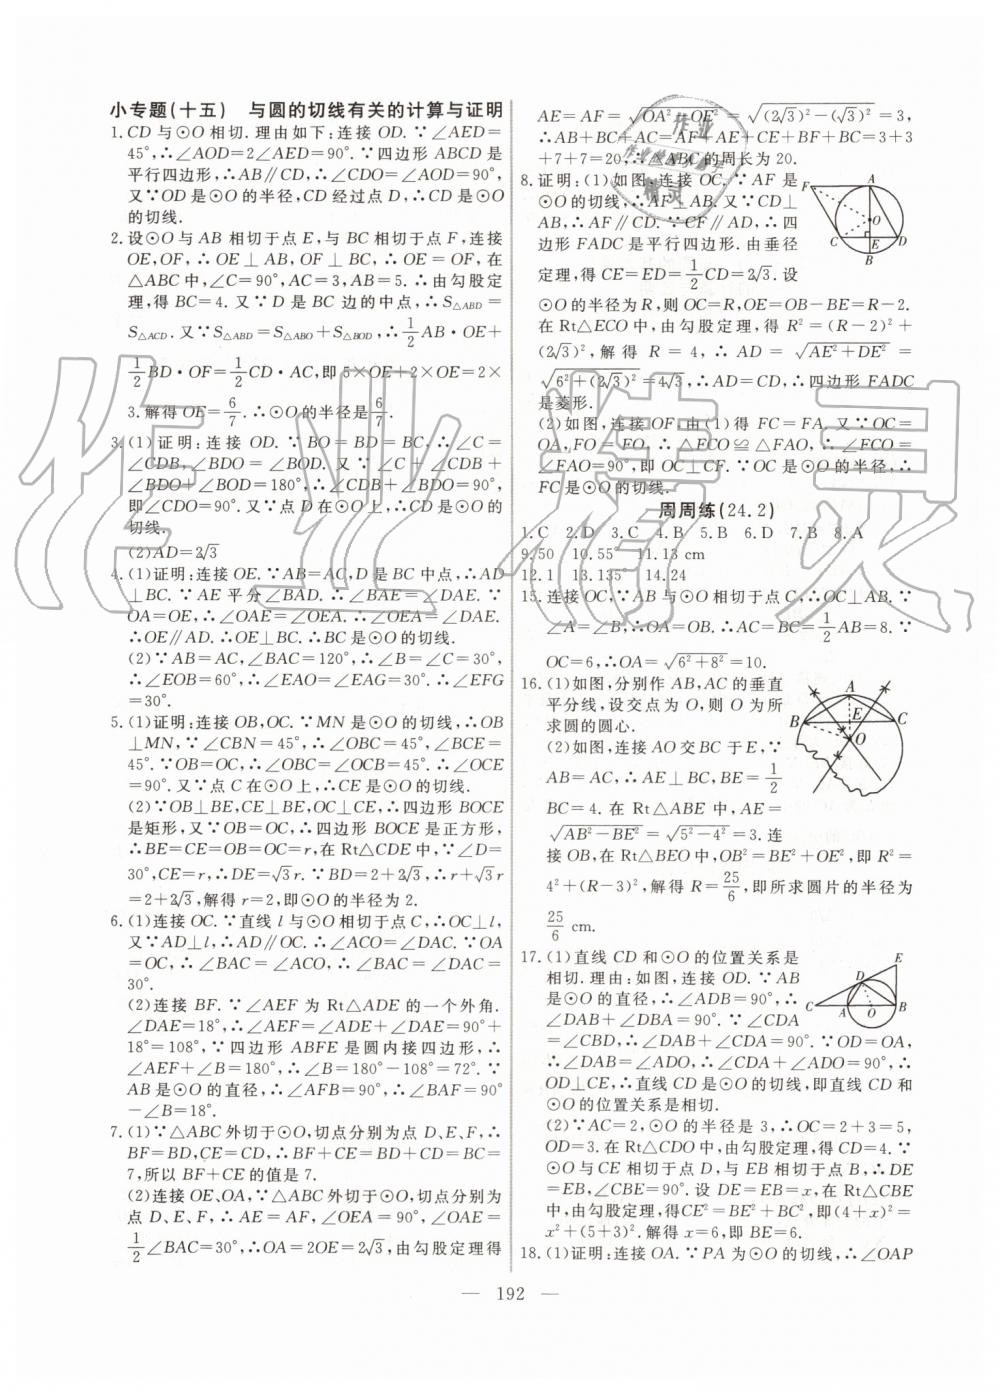 小专题(十五)　与圆的切线有关的计算与证明
1.CD与⊙O相切.理由如下:连接OD.∵∠AED=
45°,∴∠AOD=2∠AED=90°.∵四边形ABCD是
平行四边形,∴AB∥CD,∴∠CDO=∠AOD=90°,
又∵OD是⊙O的半径,CD经过点D,∴CD是⊙O
的切线.
2.设⊙O与AB相切于点E,与BC相切于点F,连接
OE,OF,∴OE⊥AB,OF⊥BC,∴OE=OF.∵在
△ABC中,∠C=90°,AC=3,AB=5.∴由勾股定
理,得BC=4.又∵D是BC边的中点,∴S△ABD=
S△ACD.又∵S△ABD=S△ABO+S△BOD,∴1/2AB·OE+
1/2BD·OF=1/2CD·AC,即5×OE+2×OE=2×
3.解得OE=6/7.∴⊙O的半径是6/7.
3.(1)证明:连接OD.∵BO=BD=BC,∴∠C=
∠CDB,∠BDO=∠BOD.又∵∠C+∠CDB+
∠BDO+∠BOD=180°,∴∠CDB+∠BDO=90°,
即∠CDO=90°.又∵点D在⊙O上,∴CD是⊙O的
切线.
(2)AD=2√3
4.(1)证明:连接OE.∵AB=AC,D是BC中点,∴AD
⊥BC.∵AE平分∠BAD.∴∠BAE=∠DAE.∵
OA=OE,∴∠OAE=∠OEA.∴∠OEA=∠DAE.
∴OE∥AD.∴OE⊥BC.∴BC是⊙O的切线.
(2)∵AB=AC,∠BAC=120°,∴∠B=∠C=30°,
∴∠EOB=60°,∴∠EAO=∠EAG=30°.∴∠EFG
=30°.
5.(1)证明:连接OB,OC.∵MN是⊙O的切线,∴OB
⊥MN,∵∠CBN=45°,∴∠OBC=45°,∠BCE=
45°.∵OB=OC,∴∠OBC=∠OCB=45°,∴∠OCE
=90°.又∵点C在⊙O上,∴CE是⊙O的切线.
(2)∵OB⊥BE,CE⊥BE,OC⊥CE,∴四边形BOCE
是矩形,又∵OB=OC,∴四边形BOCE是正方形,
∴BE=CE=OB=OC=r,在Rt△CDE中,∵∠D=
30°,CE=r,∴DE=√3r.∵BD=2+2√3,∴r+√3r
=2+2√3,解得r=2,即⊙O的半径为2.
6.(1)连接OC.∵直线l与⊙O相切于点C,∴OC⊥l,
又∵AD⊥l,∴AD∥OC.∴∠ACO=∠DAC.∵OA
=OC,∴∠BAC=∠ACO,∴∠BAC=∠DAC=
30°.
(2)连接BF.∵∠AEF为Rt△ADE的一个外角.
∠DAE=18°,∴∠AEF=∠ADE+∠DAE=90°+
18°=108°,∵四边形ABFE是圆内接四边形,∴
∠AEF+∠B=180°,∴∠B=180°-108°=72°.∵
AB是⊙O的直径,∴∠AFB=90°,∴∠BAF=90°
-∠B=18°.
7.(1)∵△ABC外切于⊙O,切点分别为点D、E、F,∴
BF=BD,CE=CD,∴BF+CE=BD+CD=BC=
7,所以BF+CE的值是7.
(2)连接OE、OA,∵△ABC外切于⊙O,切点分别为
点D、E、F,∴AE=AF,∠OEA=90°,∠OAE=
1/2∠BAC=30°,∴OA=2OE=2√3,由勾股定理得
AE=AF=√(OA²-OE²)=√((2√3)²-(√3)²)=3,
∴AB+BC+AC=AF+AE+CE+BF+BC=3+3
+7+7=20,∴△ABC的周长为20.
8.证明:(1)如图,连接OC.∵AF是
⊙O的切线,∴AF⊥AB.又∵CD⊥
AB,∴AF∥CD.∵CF∥AD,∴四
边形FADC是平行四边形.由垂径
定理,得CE=ED=1/2CD=2√3.设
⊙O的半径为R,则OC=R,OE=OB-BE=R-2.
在Rt△ECO中,由勾股定理,得R²=(R-2)²+
(2√3)²,解得R=4,∴AD=√(AE²+DE²)=
√(6²+(2√3)²)=4√3,∴AD=CD=4√3,∴四边形FADC
是菱形.
(2)如图,连接OF,由(1)得FC=FA.又∵OC=
OA,FO=FO,∴△FCO≌△FAO,∴∠FCO=
∠FAO=90°,即OC⊥CF.∵OC是⊙O的半径,∴
FC是⊙O的切线.
周周练(24.2)
1.C 2.D 3.C 4.B 5.B 6.D 7.B 8.A
9.50 10.55° 11.13 cm
12.1 13.135° 14.24
15.连接OC,∵AB与⊙O相切于点C,∴OC⊥AB.∵
∠A=∠B,∴OA=OB.∴AC=BC=1/2AB=8.∵
OC=6,∴OA=√(6²+8²)=10.
16.(1)如图,分别作AB,AC的垂直
平分线,设交点为O,则O为所
求圆的圆心.
(2)如图,连接AO交BC于E,∵
AB=AC,∴AE⊥BC,BE=1/2
BC=4.在Rt△ABE中,AE=
√(AB²-BE²)=√(5²-4²)=3.连
接OB,在Rt△BEO中,OB²=BE²+OE²,即R²=
4²+(R-3)²,解得R=25/6,即所求圆片的半径为
25/6 cm.
17.(1)直线CD和⊙O的位置关系是
相切.理由:如图,连接OD.∵AB
是⊙O的直径,∴∠ADB=90°,∴
∠DAB+∠DBA=90°.∵∠CDA
=∠CBD,∴∠DAB+∠CDA=90°.∵OD=OA,
∴∠DAB=∠ADO,∴∠CDA+∠ADO=90°,∴
OD⊥CE,∴直线CD是⊙O的切线,即直线CD和
⊙O的位置关系是相切.
(2)∵AC=2,⊙O的半径是3,∴OC=2+3=5,
OD=3.在Rt△CDO中,由勾股定理,得CD=4.∵
CE与⊙O相切于点D,与EB相切于点B,∴DE
=EB,∠CBE=90°.设DE=EB=x,在Rt△CBE
中,由勾股定理,得CE²=BE²+BC²,即(4+x)²=
x²+(5+3)².解得x=6,即BE=6.
18.(1)证明:连接OA.∵PA为⊙O的切线,∴∠OAP
F A O C E D B
A B E C O
E D C A O B
— 192 —
作业精灵
作业
精灵